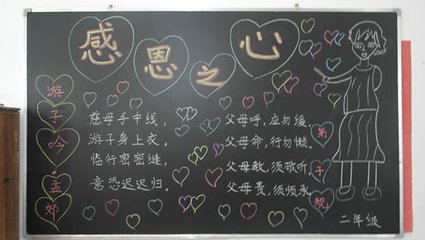 感恩之心
游子吟·孟郊
慈母手中线，
游子身上衣。
临行密密缝，
意恐迟迟归。
父母呼，应勿缓。
父母命，行勿懒。
父母教，须敬听。
父母责，须顺承。
弟子规
二年级